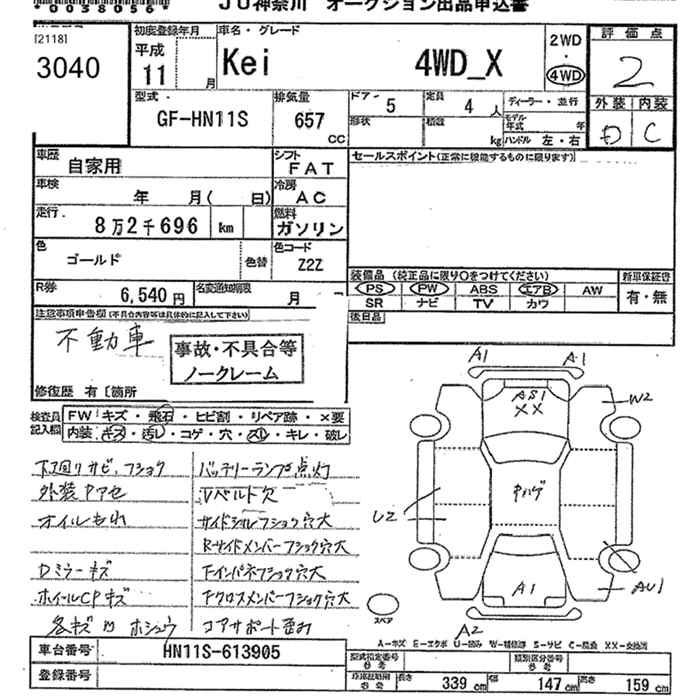 *0038056*
JU神奈川 オークション出品申込書
[2118]
3040
初度登録年月
平成
11 月
車名・グレード
Kei 4WD_X
2WD
・
4WD
評価点
2
外装 内装
D C
型式・
GF-HN11S
排気量
657
CC
ドア・ 5
定員 4 人
ディーラー・並行
形状
積載 kg
モデル年式 年
ハンドル 左・右
車歴
自家用
シフト
FAT
セールスポイント(正常に機能するものに限ります)
車検
年 月( 日)
冷房
AC
走行.
8万2千696 km
燃料
ガソリン
色
ゴールド
色替
色コード
Z2Z
装備品 (純正品に限り○をつけてください)
新車保証書
R券
6,540円
名変通知期限
月
PS PW ABS エアB AW
有・無
SR ナビ TV カワ
後日品
注意事項申告欄(不具合等は具体的に記入して下さい)
不動車
事故・不具合等
ノークレーム
修復歴 有〔箇所
検査員
記入欄
FW キズ・飛石・ヒビ割・リペア跡・×要
内装 キズ・汚レ・コゲ・穴・スレ・キレ・破レ
下廻りサビ、フショク
バッテリーランプ点灯
外装ヤアセ
Vベルト欠
オイルもれ
サイドシルフショク穴大
RサイドメンバーフショクA穴大
Dミラーキズ
Fインパネフショク穴大
ホイールCPキズ
Fクロスメンバーフショク穴大
各キズ凹ホシュウ
コアサポート歪み
A1
A1
AS1
XX
W2
U2
中ハゲ
A1
AU1
A2
スペア
A-キズ E-エクボ U-凹み W-補修跡 S-サビ C-腐食 XX-交換済
車台番号
HN11S-613905
登録番号
型式指定番号
参考
類別区分番号
参考
車庫証明用
参考
長さ 339 cm
幅 147 cm
高さ 159 cm